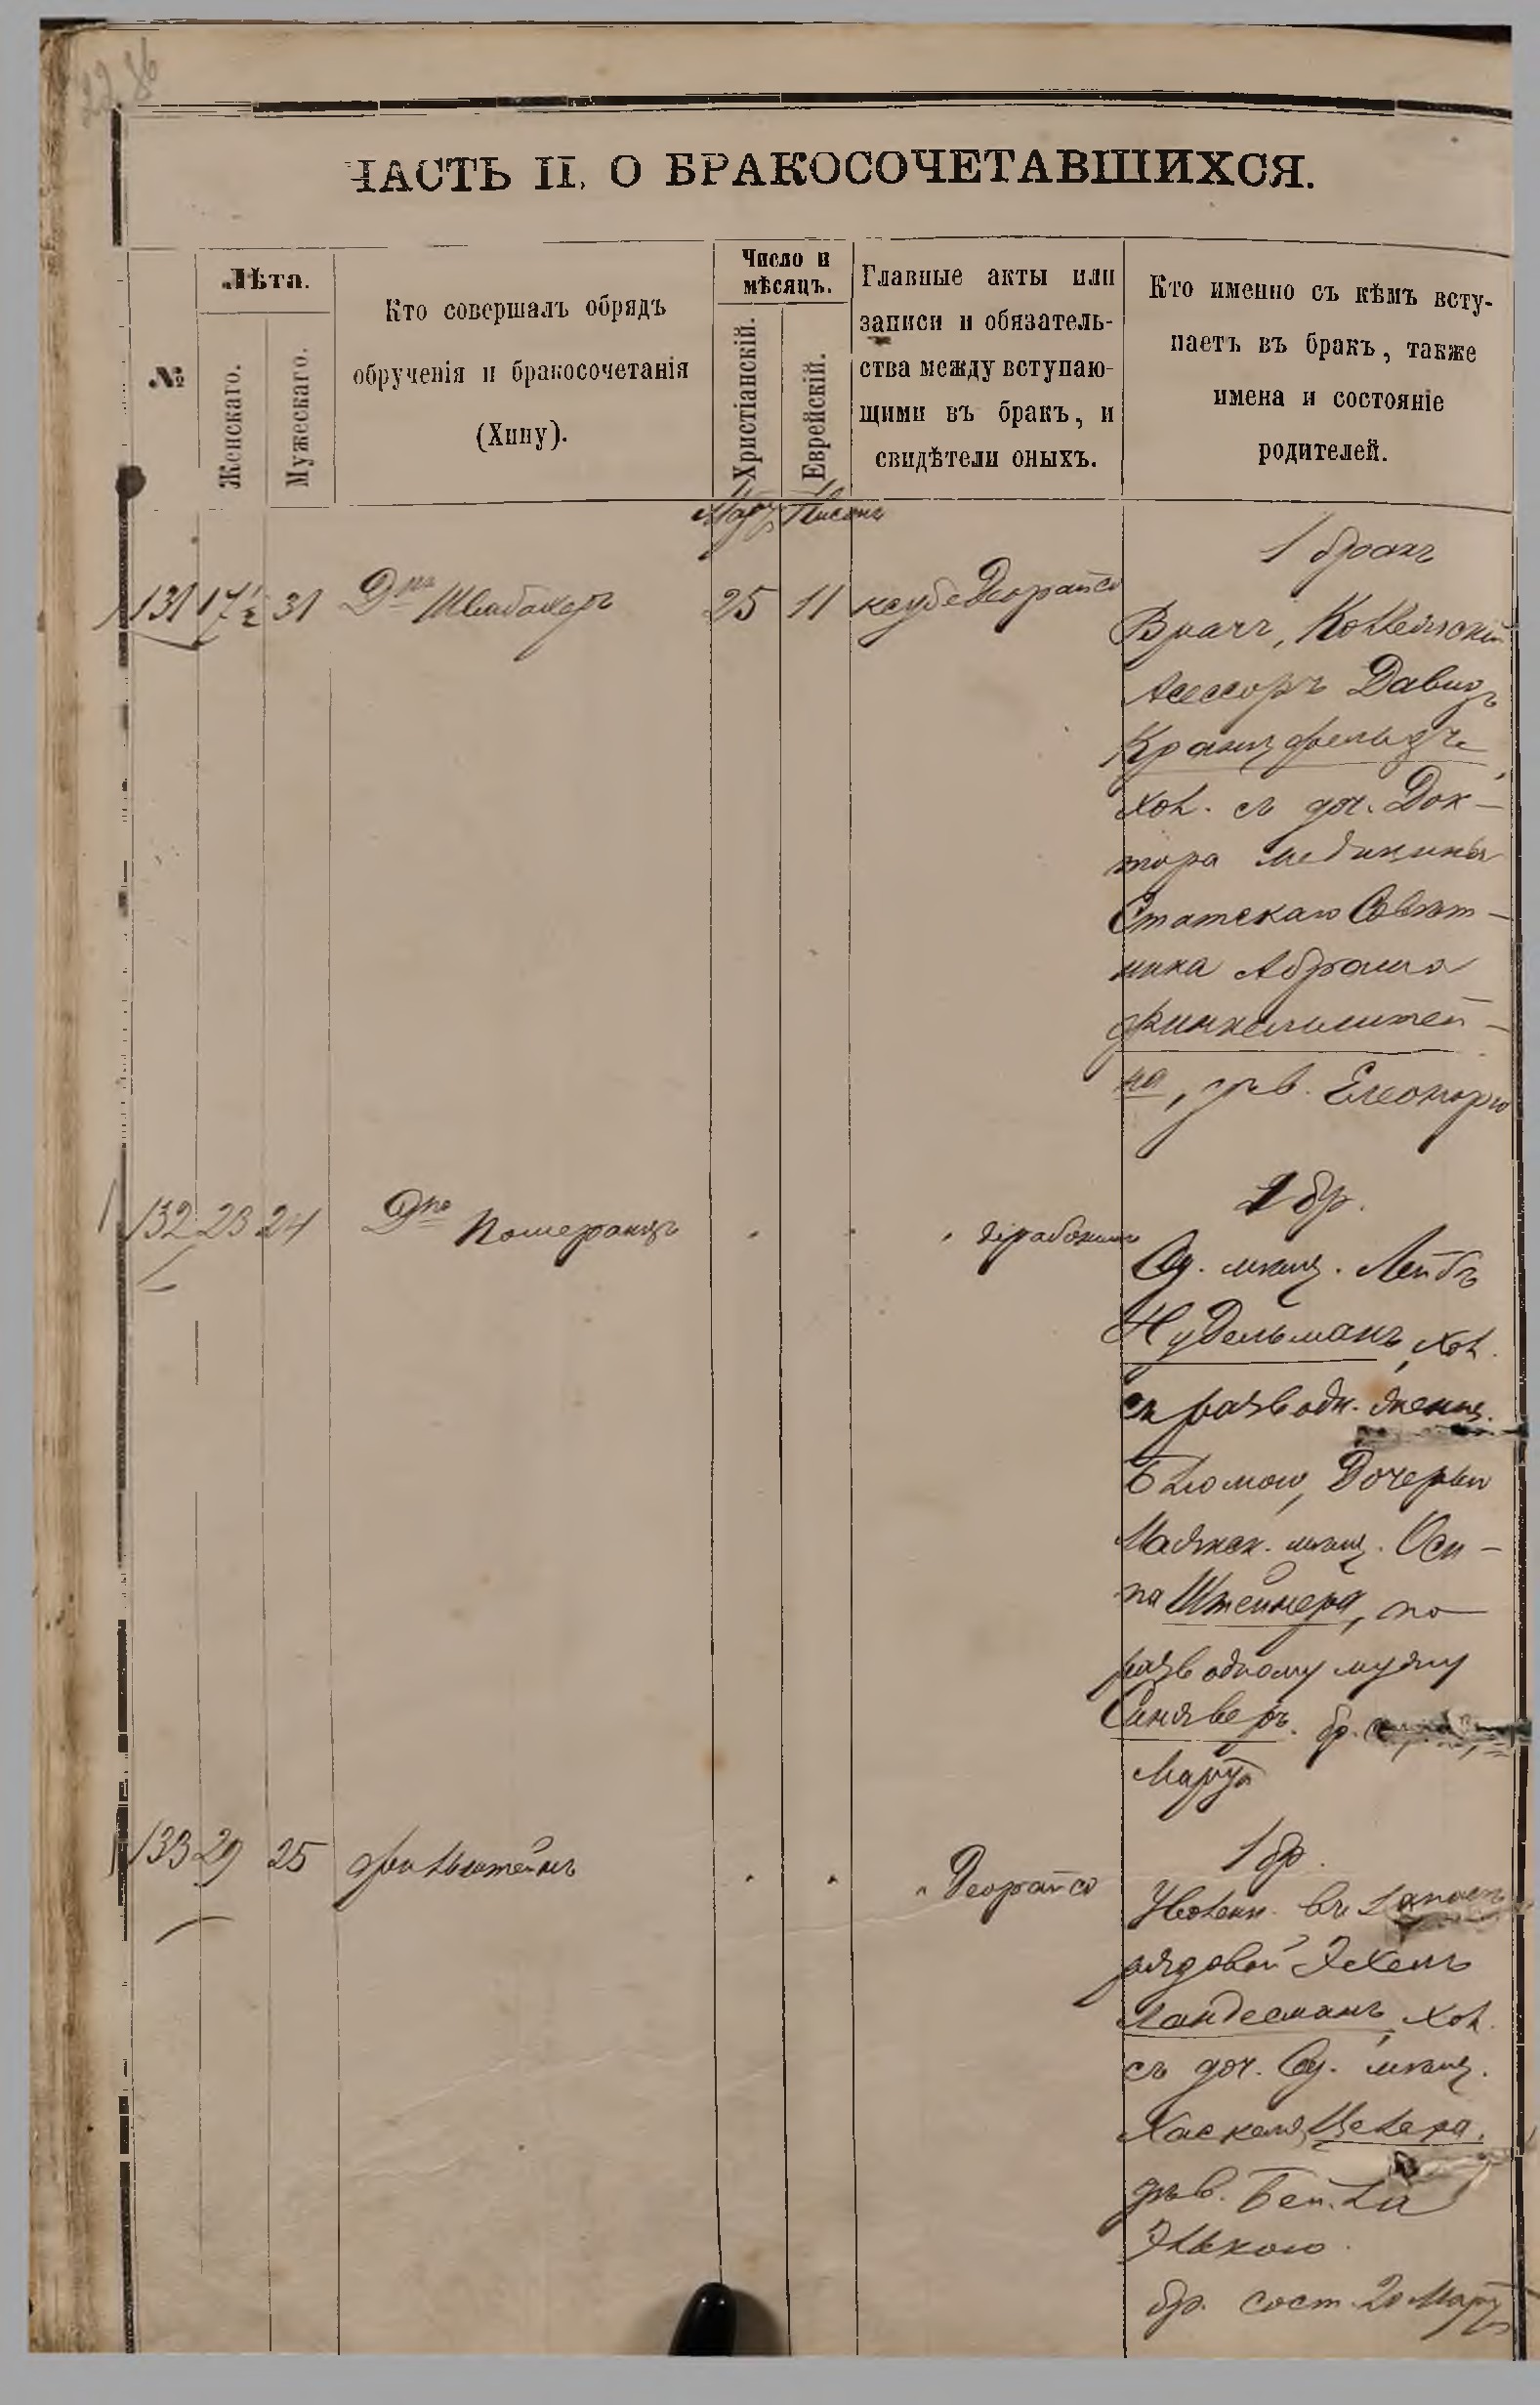 ЧАСТЬ II, О БРАКОСОЧЕТАВШИХСЯ.
№
Лѣта.
Женскаго.
Мужескаго.
Кто совершалъ обрядъ
обрученія и бракосочетанія
(Хипу).
Число и
мѣсяцъ.
Христіанскій.
Еврейскій.
Главные акты или
записи и обязатель-
ства между вступаю-
щими въ бракъ, и
свидѣтели оныхъ.
Кто именно съ кѣмъ всту-
паетъ въ бракъ, также
имена и состояніе
родителей.
Мартъ Нисонъ
131 17½ 31 Д-ръ Швабахеръ 25 11
1 бракъ
Врачъ, Коллежскій
Асессоръ Давидъ
Кранцфельдъ,
хол. съ доч. Док-
тора медицины
Статскаго Совѣт-
ника Абрама
Финкельштей-
на, дѣв. Елеонорю
132 23 24 Померанцъ
1 бр.
Од. мѣщ. Лейбъ
Нудельманъ, хол.
съ разводн. женщ.
Блюмою, дочерью
Маякск. мѣщ. Оси-
па Штейнера, по
разводному мужу
Синяверъ. бр.
Марта
133 29 25 Финкельштейнъ
1 бр.
Уволен. въ запасъ
рядовой Эхель
Ландесманъ, хол.
съ доч. Од. мѣщ.
Хаскеля Целера,
дѣв. Бейла
Элькою.
бр. сост. 20 Марта